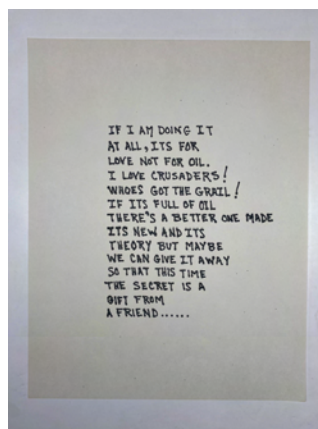 IF I AM DOING IT
AT ALL, ITS FOR
LOVE NOT FOR OIL.
I LOVE CRUSADERS!
WHOES GOT THE GRAIL!
IF ITS FULL OF OIL
THERE'S A BETTER ONE MADE
ITS NEW AND ITS
THEORY BUT MAYBE
WE CAN GIVE IT AWAY
SO THAT THIS TIME
THE SECRET IS A
GIFT FROM
A FRIEND......